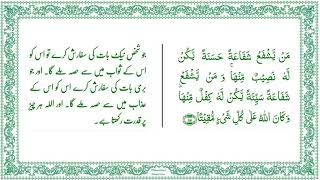 مَنْ يَّشْفَعْ شَفَاعَةً حَسَنَةً يَّكُنْ
لَّهٗ نَصِيْبٌ مِّنْهَا ۚ وَ مَنْ يَّشْفَعْ
شَفَاعَةً سَيِّئَةً يَّكُنْ لَّهٗ كِفْلٌ مِّنْهَا ؕ
وَ كَانَ اللّٰهُ عَلٰى كُلِّ شَیْءٍ مُّقِيْتًا
جو شخص نیک بات کی سفارش کرے تو اس کو
اس کے ثواب میں سے حصہ ملے گا۔ اور جو
بری بات کی سفارش کرے اس کو اس کے
عذاب میں سے حصہ ملے گا۔ اور اللہ ہر چیز
پر قدرت رکھتا ہے۔